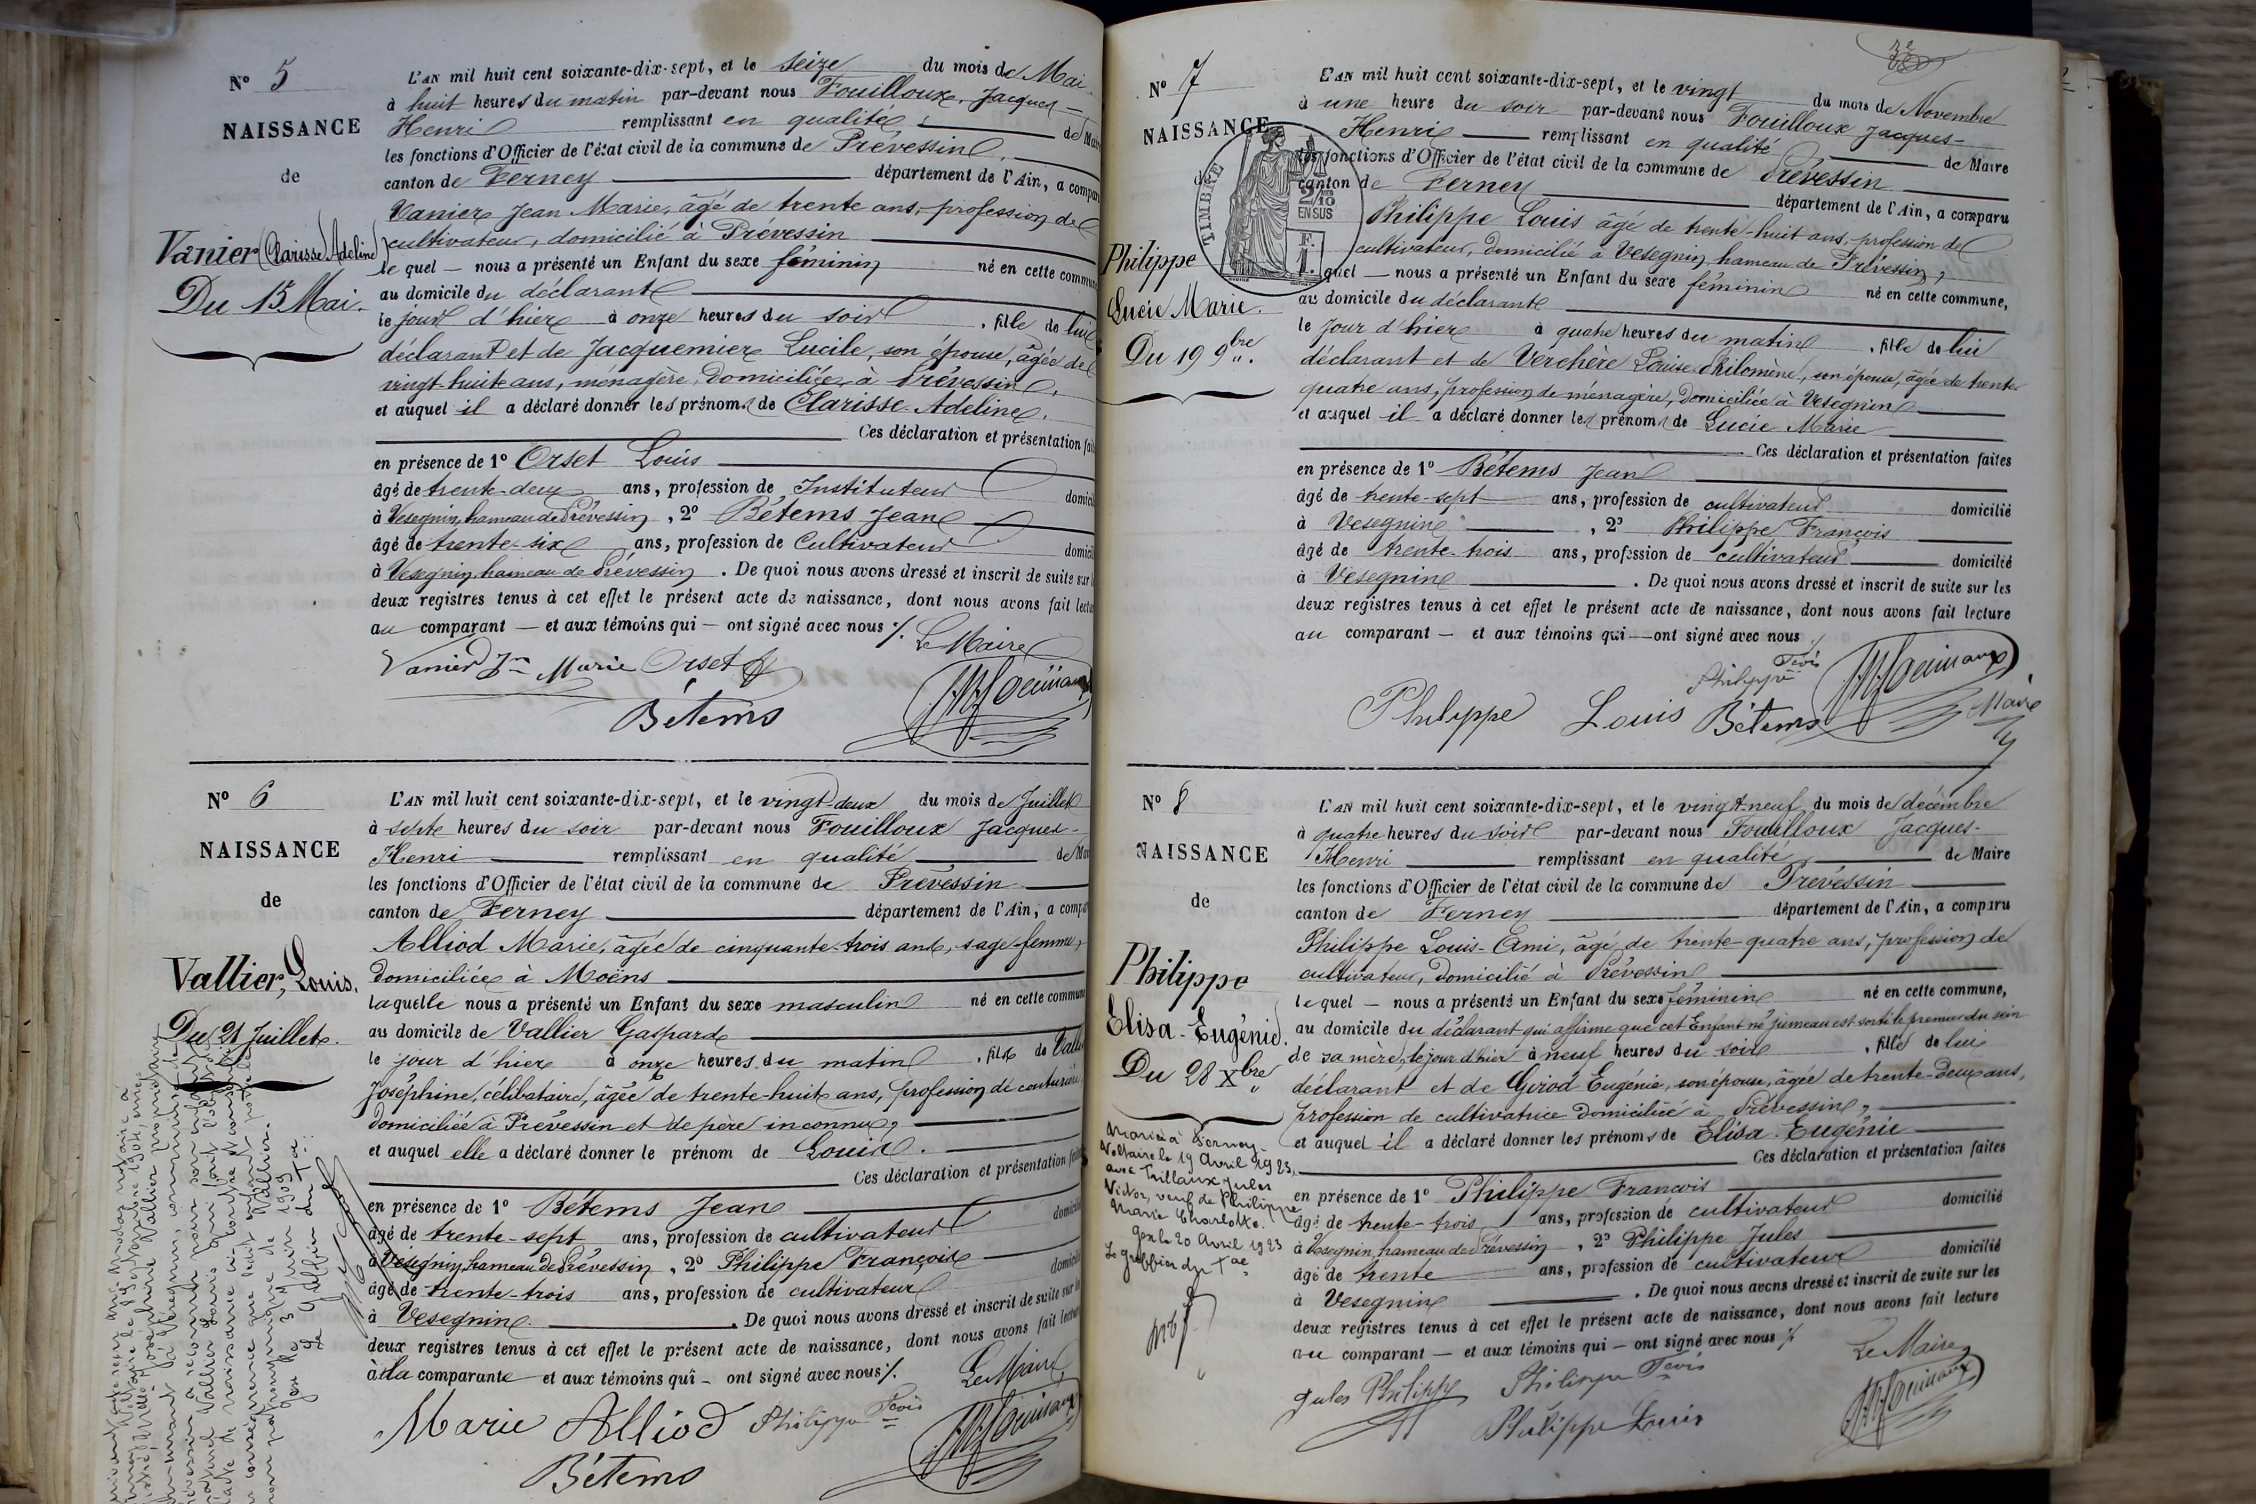 N° 5
NAISSANCE
de
Vanier (Clarisse Adeline)
Du 15 Mai.
L'AN mil huit cent soixante-dix-sept, et le seize du mois de Mai
à huit heures du matin par-devant nous Fouilloux, Jacques
Henri remplissant en qualité de Maire
les fonctions d'Officier de l'état civil de la commune de Prévessin
canton de Ferney département de l'Ain, a comparu
Vanier Jean Marie, âgé de trente ans, profession de
cultivateur, domicilié à Prévessin
le quel — nous a présenté un Enfant du sexe féminin né en cette commune
au domicile du déclarant
le jour d'hier à onze heures du soir, fille de lui
déclarant et de Jacquemier Lucile, son épouse, âgée de
vingt-huit ans, ménagère, domiciliée à Prévessin,
et auquel il a déclaré donner les prénoms de Clarisse Adeline.
Ces déclaration et présentation faites
en présence de 1° Orset Louis
âgé de trente-deux ans, profession de Instituteur domicilié
à Vesegnin, hameau de Prévessin, 2° Bétems Jean
âgé de trente-six ans, profession de Cultivateur domicilié
à Vesegnin hameau de Prévessin. De quoi nous avons dressé et inscrit de suite sur les
deux registres tenus à cet effet le présent acte de naissance, dont nous avons fait lecture
au comparant — et aux témoins qui — ont signé avec nous ./.
Le Maire
Vanier Jn Marie Orset
Bétems
N° 6
NAISSANCE
de
Vallier, Louis.
Du 21 Juillet.
L'AN mil huit cent soixante-dix-sept, et le vingt-deux du mois de Juillet
à sept heures du soir par-devant nous Fouilloux Jacques-
Henri remplissant en qualité de Maire
les fonctions d'Officier de l'état civil de la commune de Prévessin
canton de Ferney département de l'Ain, a comparu
Alliod Marie, âgée de cinquante-trois ans, sage-femme,
domiciliée à Moëns
laquelle nous a présenté un Enfant du sexe masculin né en cette commune
au domicile de Vallier Gaspard
le jour d'hier à onze heures du matin, fils de Vallier
Joséphine, célibataire, âgée de trente-huit ans, profession de couturière,
domiciliée à Prévessin et de père inconnu,
et auquel elle a déclaré donner le prénom de Louis.
Ces déclaration et présentation faites
en présence de 1° Bétems Jean domicilié
âgé de trente-sept ans, profession de cultivateur
à Vésegnin, hameau de Prévessin, 2° Philippe François
âgé de trente-trois ans, profession de cultivateur domicilié
à Vesegnin. De quoi nous avons dressé et inscrit de suite sur les
deux registres tenus à cet effet le présent acte de naissance, dont nous avons fait lecture
à la comparante et aux témoins qui — ont signé avec nous ./.
Le Maire
Marie Alliod Philippe Fçois
Bétems
N° 7
NAISSANCE
de
TIMBRE
2/10
EN SUS
F.
1.
Philippe
Lucie Marie.
Du 19 9bre.
L'AN mil huit cent soixante-dix-sept, et le vingt du mois de Novembre
à une heure du soir par-devant nous Fouilloux Jacques-
Henri remplissant en qualité de Maire
les fonctions d'Officier de l'état civil de la commune de Prévessin
canton de Ferney département de l'Ain, a comparu
Philippe Louis âgé de trente-huit ans, profession de
cultivateur, domicilié à Vesegnin hameau de Prévessin,
quel — nous a présenté un Enfant du sexe féminin né en cette commune,
au domicile du déclarant
le jour d'hier à quatre heures du matin, fille de lui
déclarant et de Verchère Louise Philomène, son épouse, âgée de trente
quatre ans, profession de ménagère, domiciliée à Vesegnin
et auquel il a déclaré donner les prénoms de Lucie Marie
Ces déclaration et présentation faites
en présence de 1° Bétems Jean
âgé de trente-sept ans, profession de cultivateur domicilié
à Vesegnin, 2° Philippe François
âgé de trente-trois ans, profession de cultivateur domicilié
à Vesegnin. De quoi nous avons dressé et inscrit de suite sur les
deux registres tenus à cet effet le présent acte de naissance, dont nous avons fait lecture
au comparant — et aux témoins qui — ont signé avec nous ./.
Philippe Fçois
Philippe Louis Bétems Maire
N° 8
NAISSANCE
de
Philippe
Elisa-Eugénie.
Du 28 Xbre
L'AN mil huit cent soixante-dix-sept, et le vingt-neuf du mois de décembre
à quatre heures du soir par-devant nous Fouilloux Jacques-
Henri remplissant en qualité de Maire
les fonctions d'Officier de l'état civil de la commune de Prévessin
canton de Ferney département de l'Ain, a comparu
Philippe Louis-Ami, âgé de trente-quatre ans, profession de
cultivateur, domicilié à Prévessin
lequel — nous a présenté un Enfant du sexe féminin né en cette commune,
au domicile du déclarant qui affirme que cet Enfant né jumeau est sorti le premier du sein
de sa mère, le jour d'hier à neuf heures du soir, fille de lui
déclarant et de Girod Eugénie, son épouse, âgée de trente-deux ans,
profession de cultivatrice domiciliée à Prévessin,
et auquel il a déclaré donner les prénoms de Elisa Eugénie
Ces déclaration et présentation faites
en présence de 1° Philippe François domicilié
âgé de trente-trois ans, profession de cultivateur
à Vesegnin, hameau de Prévessin, 2° Philippe Jules
âgé de trente ans, profession de cultivateur domicilié
à Vesegnin. De quoi nous avons dressé et inscrit de suite sur les
deux registres tenus à cet effet le présent acte de naissance, dont nous avons fait lecture
au comparant — et aux témoins qui — ont signé avec nous ./.
Le Maire
Jules Philippe Philippe Fçois
Philippe Louis
Mariée à Ferney-
Voltaire le 19 Avril 1923,
avec Taillaux Jules
Victor, veuf de Philippe
Marie Charlotte.
Gex le 20 Avril 1923
Le greffier du Tal